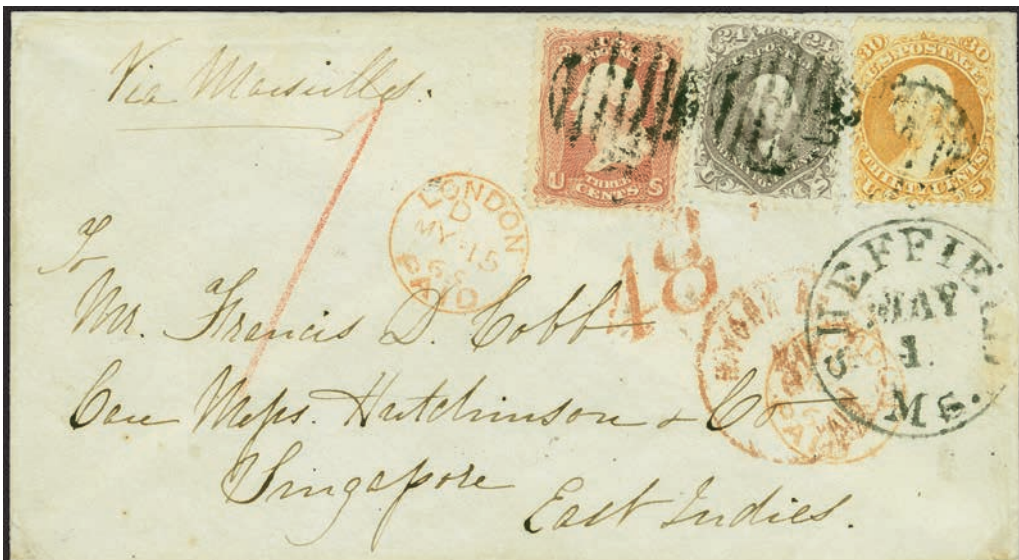 Via Marseilles.
3 3
U CENTS S
THREE
24 24
U S
30 30
U.S. POSTAGE
THIRTY CENTS
LONDON
D
MY-15
PAID
48
SHEFFIEL
MAY
1
MS.
To
Mr. Francis D. Cobb
Care Messrs. Hutchinson & Co
Singapore
East Indies.